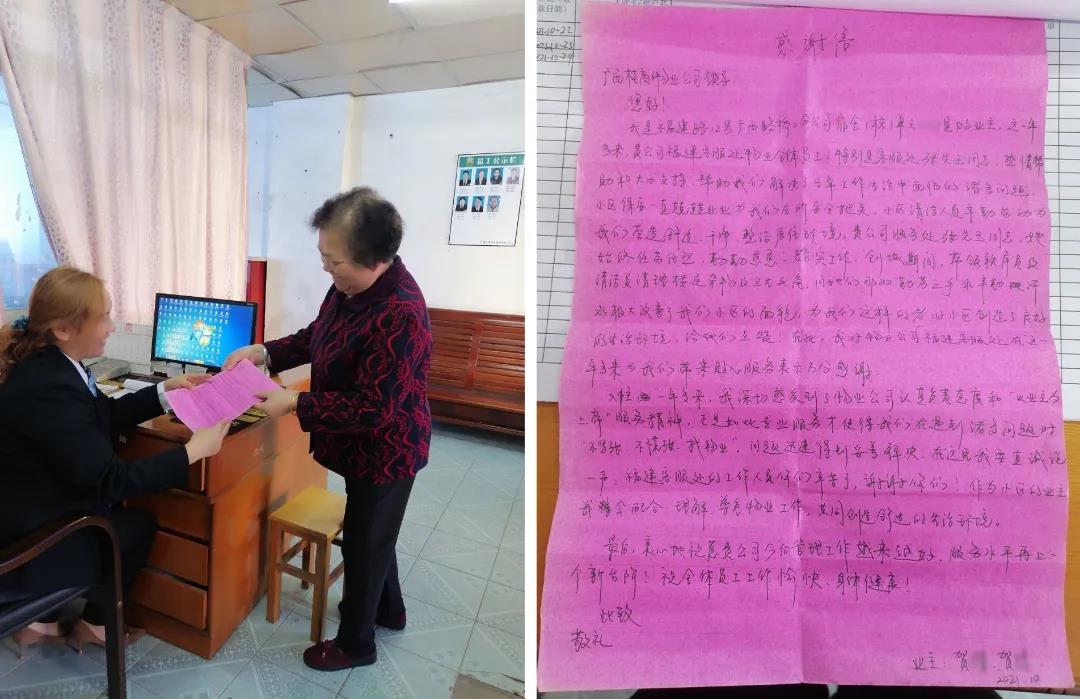 员工公示栏
款日期)
21-10-22
021-10-23
021-10-24
感谢信
广西桂商物业公司领导
您好!
我是福建路12号广西路桥二分公司宿舍1栋1单元 是的业主,这一年
多来,贵公司福建客服处物业全体员工,特别是客服处张先玉同志,热情帮
助和大力支持,帮助我们解决了今年工作生活中面临的诸多问题,
小区保安一直兢兢业业为我们居所安全把关,小区清洁人员辛勤劳动为
我们营造舒适、干净、整洁居住环境。贵公司服务处张先玉同志,她
始终任劳任怨、勤勤恳恳、踏实工作,创城期间,带领秩序员及
清洁员清理楼道杂物及卫生死角,用她们那双勤劳之手和辛勤汗
水极大改善了我们小区的面貌,为我们这样的老旧小区创造了良好
的生活环境,给她们点赞!在此,我对物业公司福建客服处在这一
年多来为我们带来贴心服务表示万分感谢
入住一年多来,我深切感受到了物业公司认真负责态度和“以业主为
上帝”服务精神,正是如此专业服务才使得我们在遇到诸多问题时
“不紧张、不慌张、找物业”,问题迅速得到妥善解决,在这里我要真诚说
一声,福建客服处的工作人员你们辛苦了,谢谢你们!作为小区的业主
我将会配合、理解、尊重物业工作,共同创造舒适的生活环境。
最后,衷心地祝愿贵公司今后管理工作越来越好,服务水平再上一
个新台阶!祝全体员工工作愉快、身体健康!
此致
敬礼
业主:贺 贺
2021.10